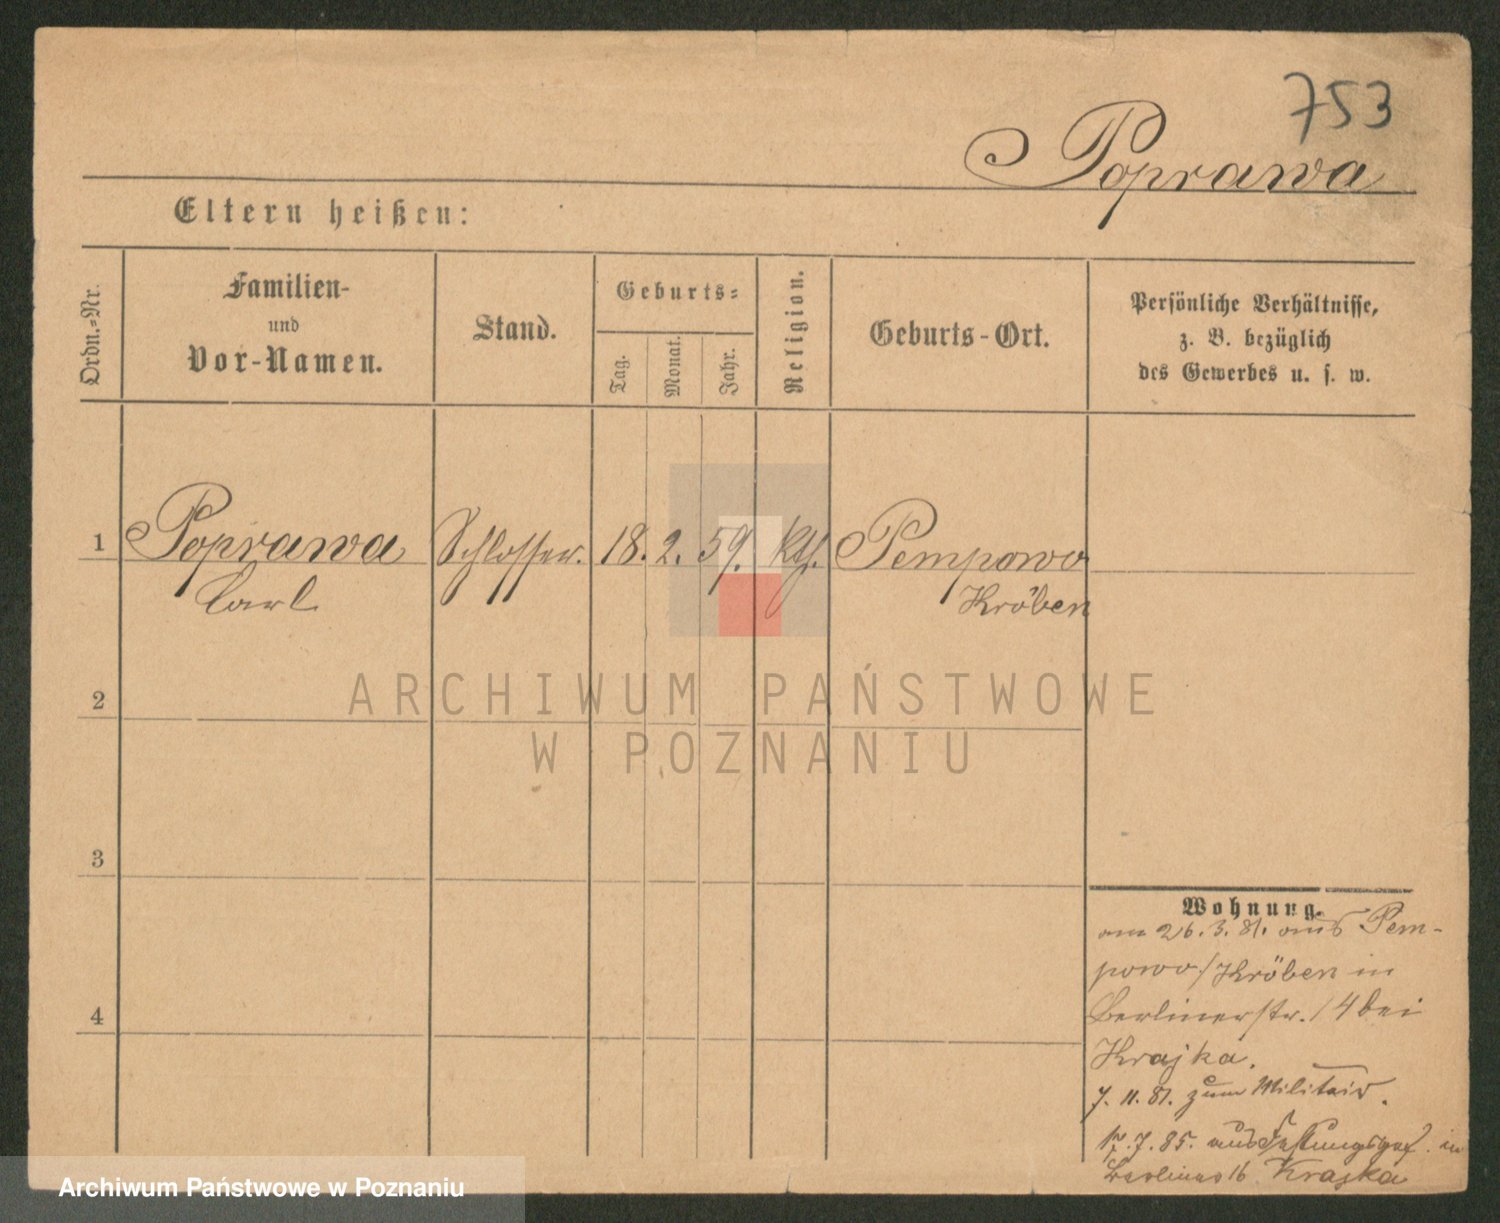 753
Poprawa
Eltern heißen:
Ordn.=Nr.
Familien-
und
Vor-Namen.
Stand.
Geburts=
Tag.
Monat.
Jahr.
Religion.
Geburts-Ort.
Persönliche Verhältnisse,
z. B. bezüglich
des Gewerbes u. s. w.
1 Poprawa Schlosser. 18. 2. 59. kth. Pempowo
Carl Kröben
2
3
4
Wohnung.
am 26. 3. 81. aus Pem-
powo/Kröben in
Berlinerstr. 14 bei
Krajka.
7. 11. 81. zum Militair.
17. 7. 85. aus Festungsgef. in
Berliner 16 Krajka
ARCHIWUM PAŃSTWOWE
W POZNANIU
Archiwum Państwowe w Poznaniu